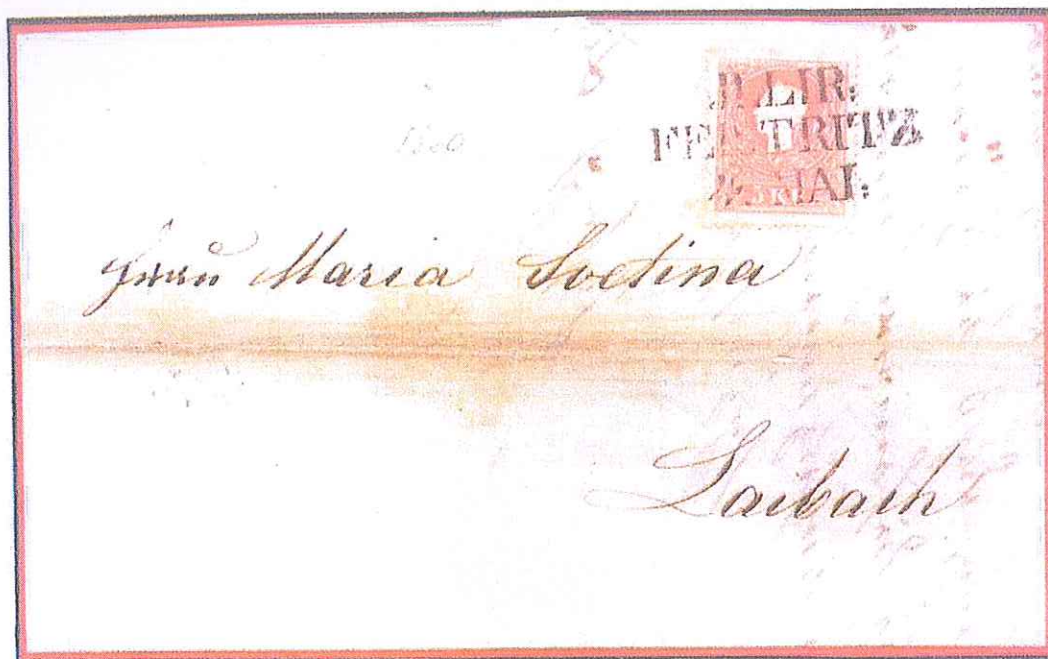 ILLIR:
FEISTRITZ
MAI:
5 KR
1860
Frau Maria Svetina
Laibach